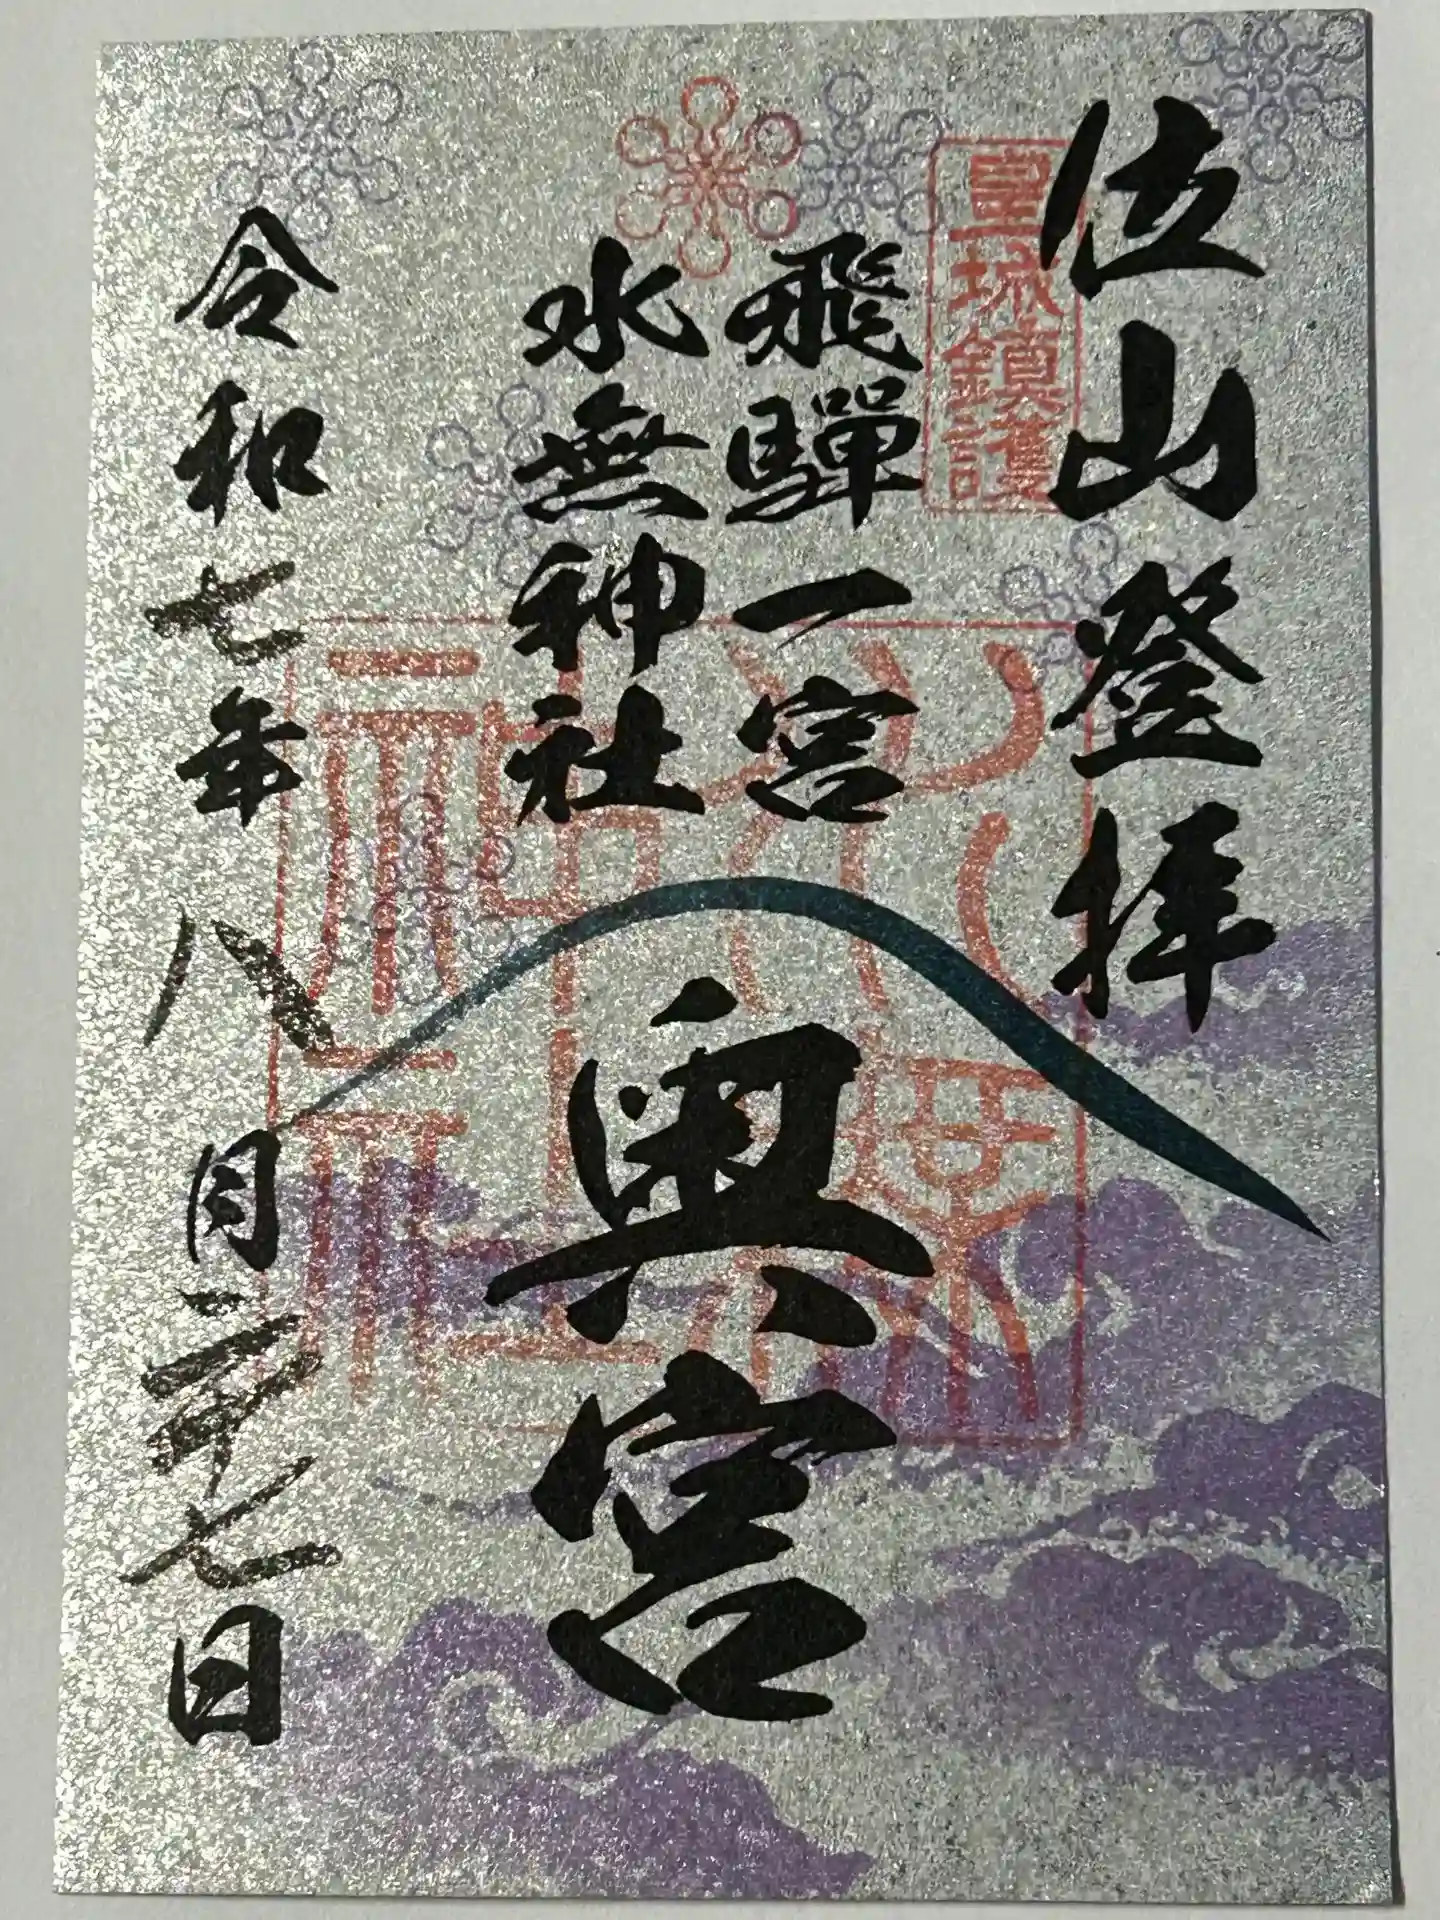 位山登拝
皇城鎮護
飛驒一宮
水無神社
奥宮
水無神社
令和七年八月二十七日